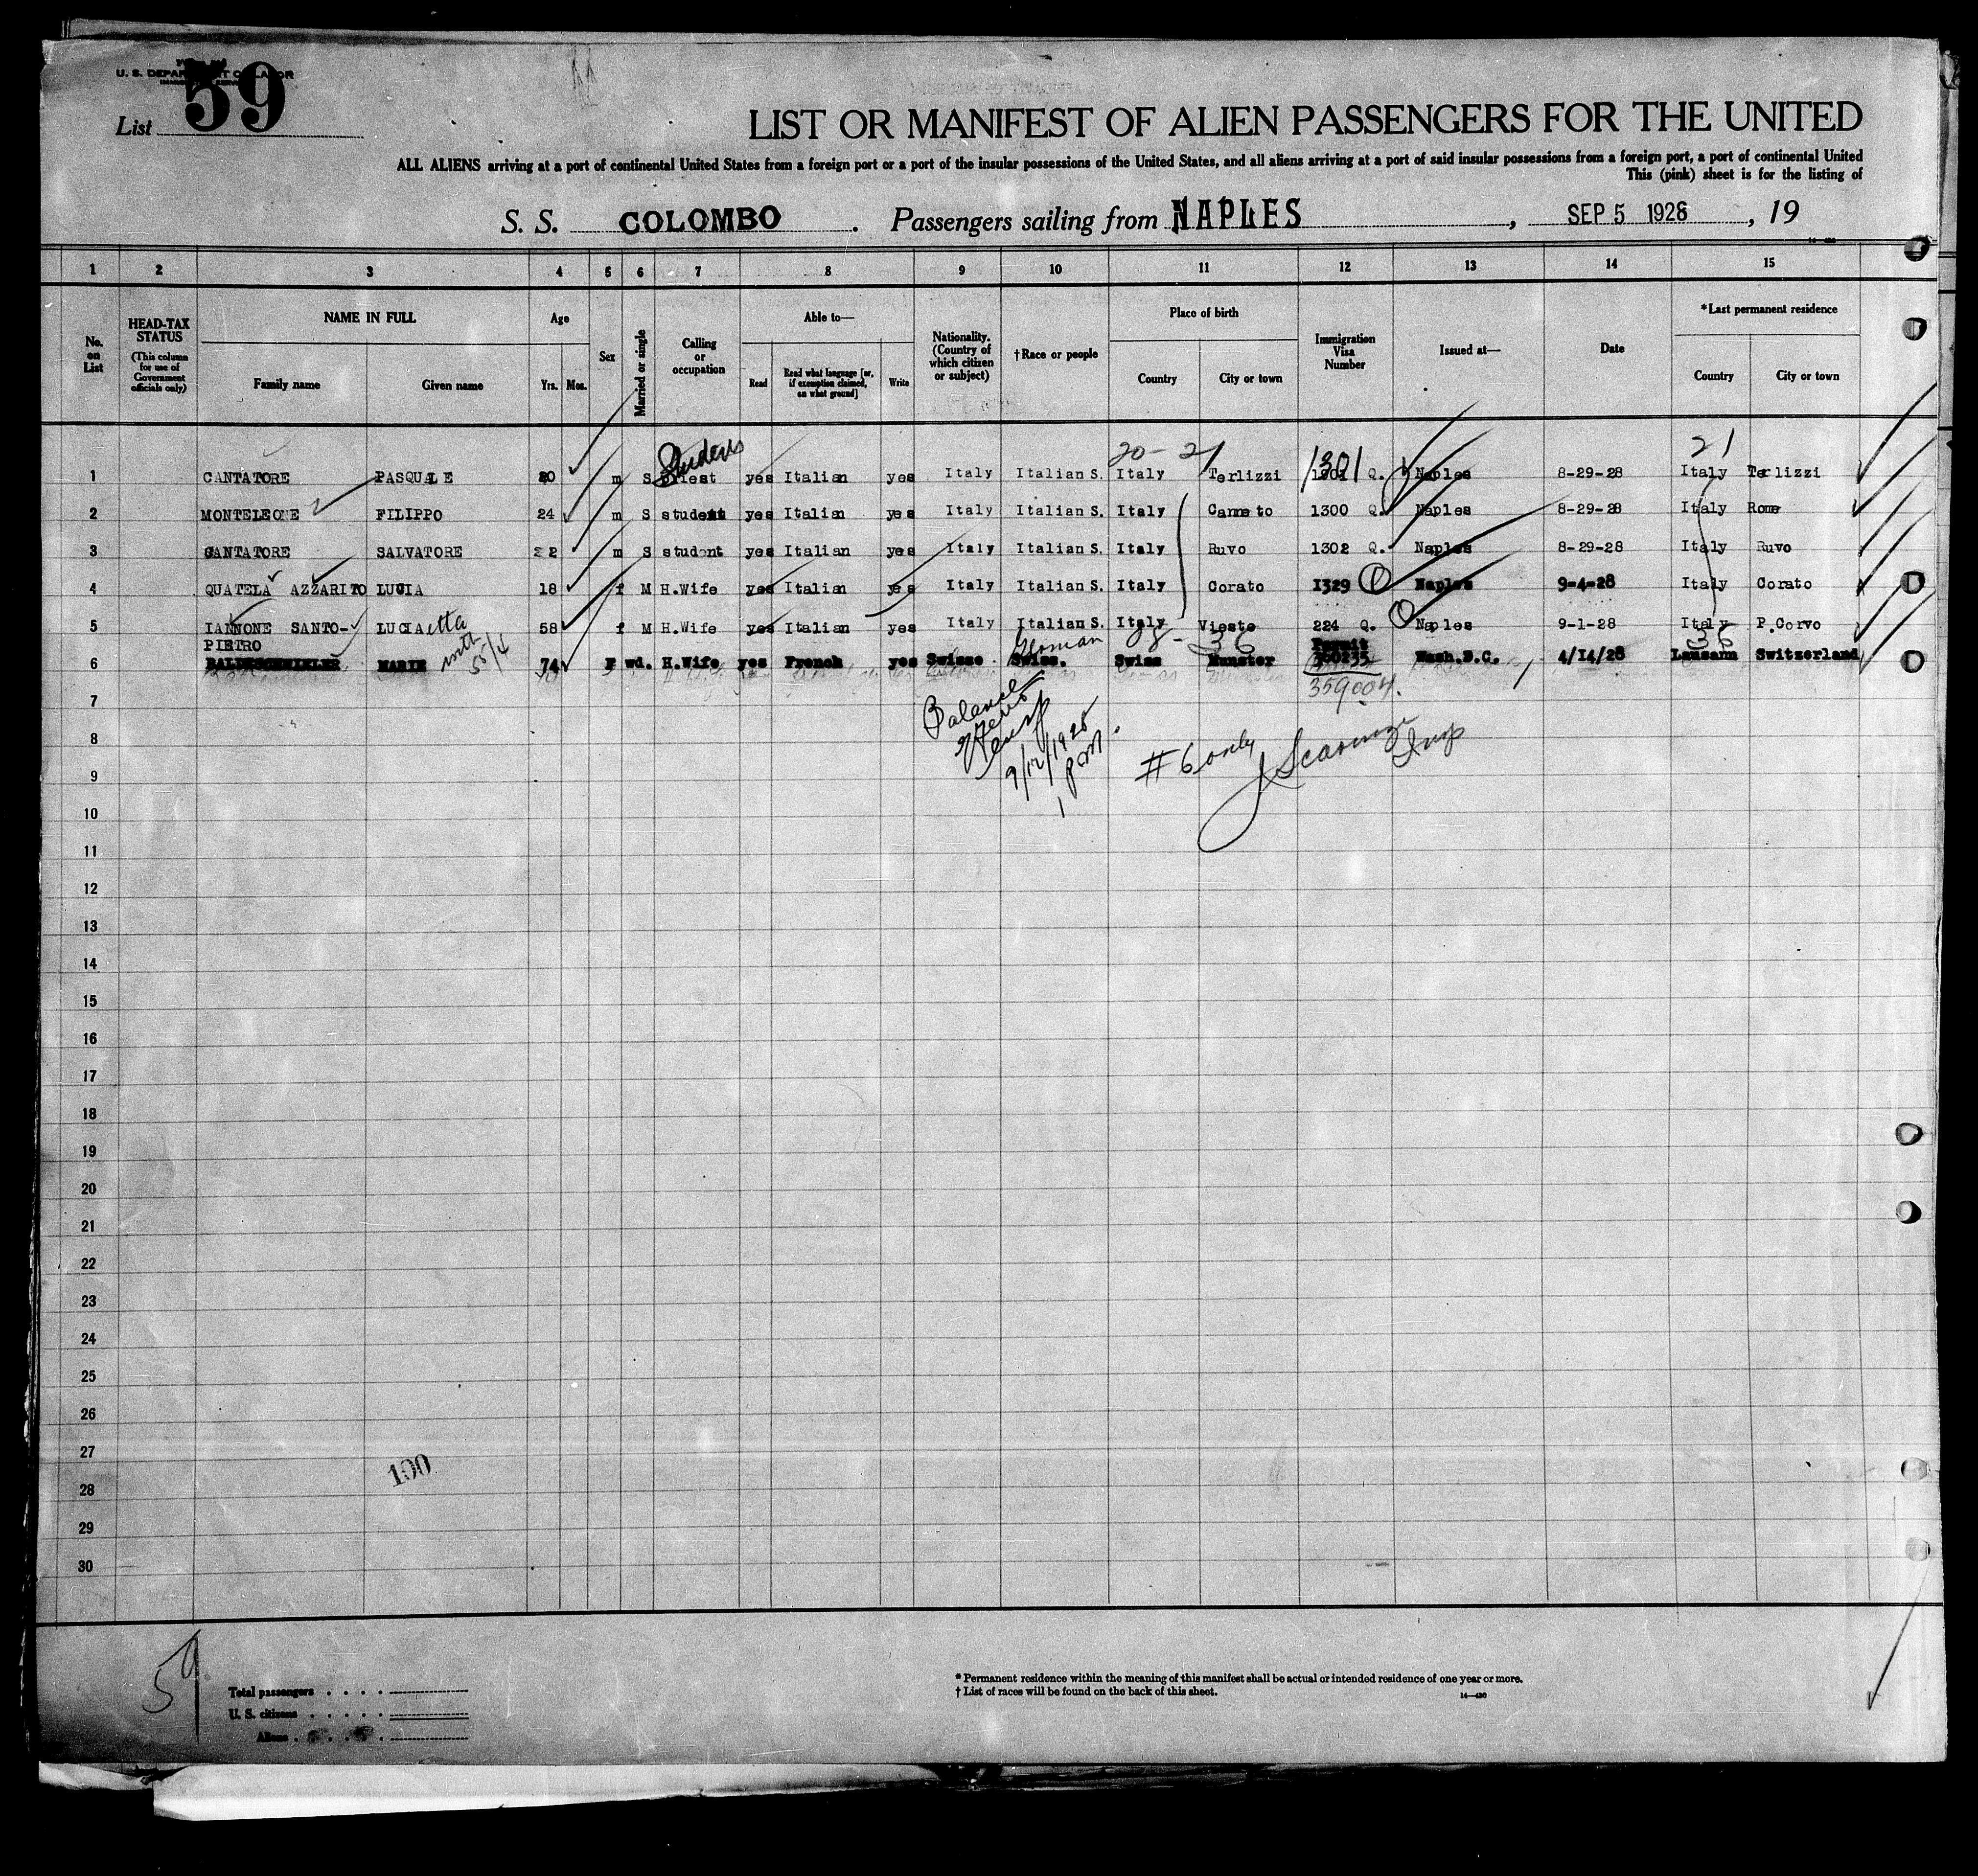 U. S. DEPARTMENT OF LABOR
List 59
LIST OR MANIFEST OF ALIEN PASSENGERS FOR THE UNITED
ALL ALIENS arriving at a port of continental United States from a foreign port or a port of the insular possessions of the United States, and all aliens arriving at a port of said insular possessions from a foreign port, a port of continental United
This (pink) sheet is for the listing of
S. S. COLOMBO. Passengers sailing from NAPLES, SEP 5 1928, 19
14—430
1 2 3 4 5 6 7 8 9 10 11 12 13 14 15
No. on List
HEAD-TAX STATUS (This column for use of Government officials only)
NAME IN FULL
Family name Given name
Age
Yrs. Mos.
Sex
Married or single
Calling or occupation
Able to—
Read Read what language [or, if exemption claimed, on what ground] Write
Nationality. (Country of which citizen or subject)
†Race or people
Place of birth
Country City or town
Immigration Visa Number
Issued at—
Date
*Last permanent residence
Country City or town
Student 20-21 1301 21
1 CANTATORE PASQUALE 20 m S Priest yes Italian yes Italy Italian S. Italy Terlizzi 1301 Q. Naples 8-29-28 Italy Terlizzi
2 MONTELEONE FILIPPO 24 m S student yes Italian yes Italy Italian S. Italy Canneto 1300 Q. Naples 8-29-28 Italy Rome
3 CANTATORE SALVATORE 22 m S student yes Italian yes Italy Italian S. Italy Ruvo 1302 Q. Naples 8-29-28 Italy Ruvo
4 QUATELA AZZARITO LUCIA 18 f M H.Wife yes Italian yes Italy Italian S. Italy Corato 1329 Naples 9-4-28 Italy Corato
5 IANNONE SANTO- LUCIAetta 58 f M H.Wife yes Italian yes Italy Italian S. Italy Vieste 224 Q. Naples 9-1-28 Italy P.Corvo
PIETRO with 55/4 German 08-36 Permit 36
6 MARIE 74 F wd. H.Wife yes French yes Swisse Swiss. Swiss Munster 360235 Wash.D.C. 4/14/28 Lausann Switzerland
359004.
7
Balance
9/12/1928
1 pm.
# 6 only
Insp
8
9
10
11
12
13
14
15
16
17
18
19
20
21
22
23
24
25
26
27
100
28
29
30
59
Total passengers
U. S. citizens
Aliens
* Permanent residence within the meaning of this manifest shall be actual or intended residence of one year or more.
† List of races will be found on the back of this sheet.
14—430